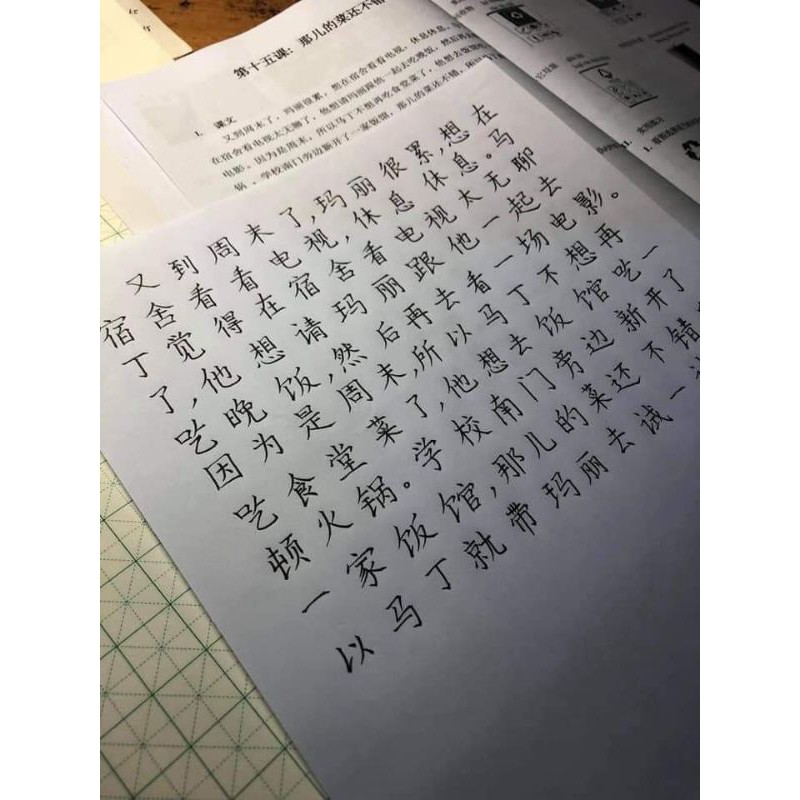 第十五课：那儿的菜还不错
1. 课文
又到周末了，玛丽很累，想在宿舍看看电视，休息休息。
在宿舍看电视太无聊了，他想请玛丽跟他一起去吃晚饭，然后再去
电影。因为是周末，所以马丁不想再吃食堂菜了，他想去饭馆吃
锅。学校南门旁边新开了一家饭馆，那儿的菜还不错，所以
又到周末了,玛丽很累,想在
宿舍看看电视,休息休息。马
丁觉得在宿舍看电视太无聊
了,他想请玛丽跟他一起去
吃晚饭,然后再去看一场电影。
因为是周末,所以马丁不想再
吃食堂菜了,他想去饭馆吃一
顿火锅。学校南门旁边新开了
一家饭馆,那儿的菜还不错
以马丁就带玛丽去试一